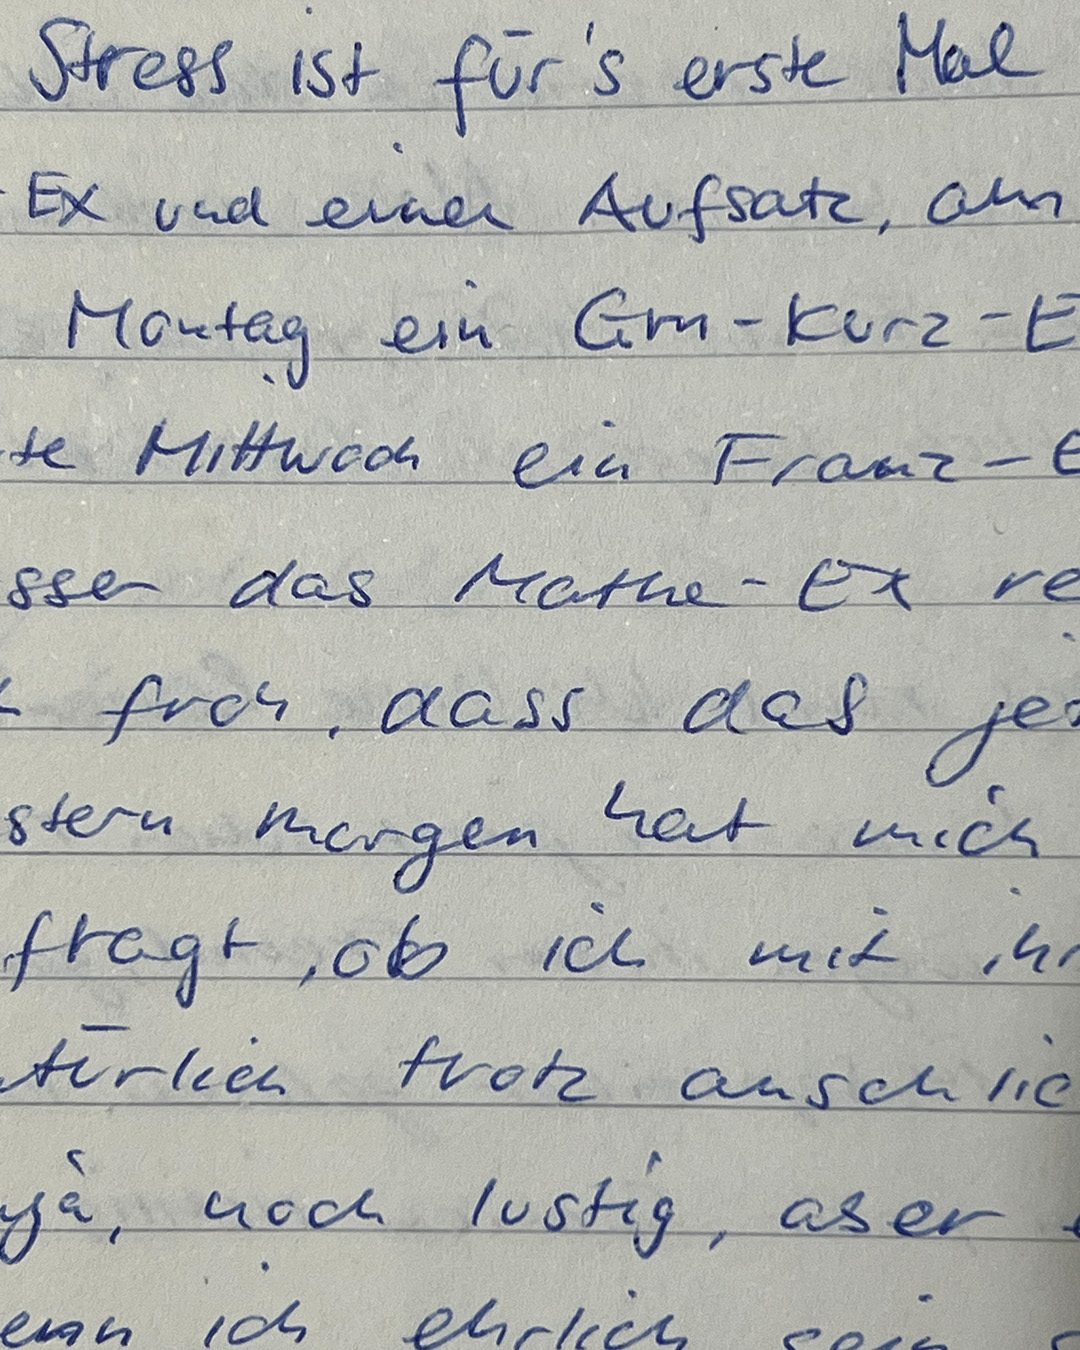 Stress ist für's erste Mal
-Ex und einen Aufsatz, am
Montag ein Grn-Kurz-E
te Mittwoch ein Franz-E
sser das Mathe-Ex re
froh, dass das je
stern morgen hat mich
fragt, ob ich mit ihr
türlich trotz anschlie
ja, noch lustig, aber
enn ich ehrlich sein